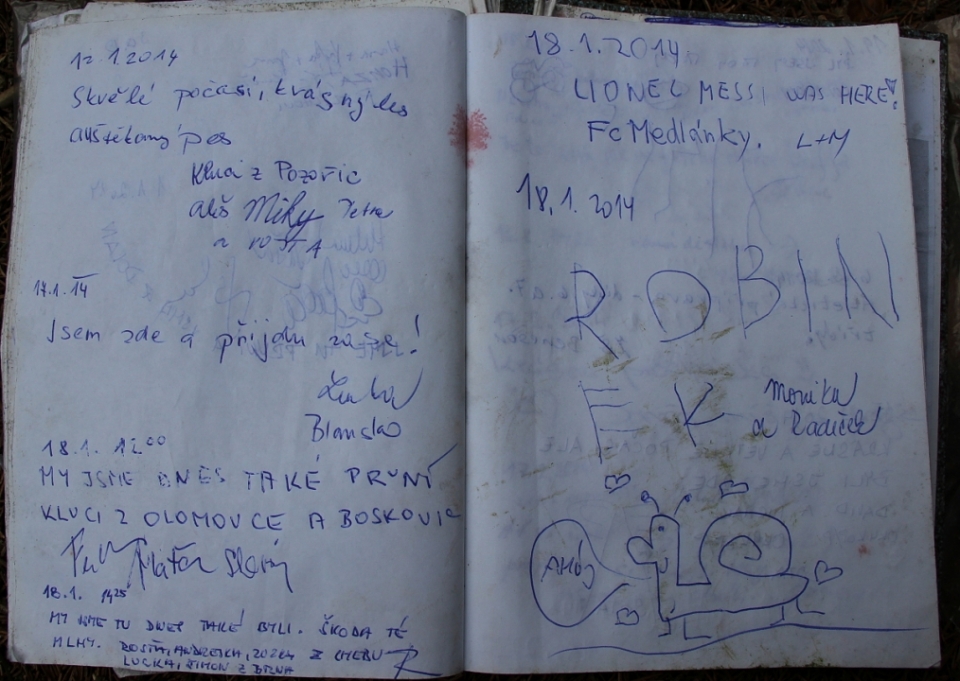 12.1.2014
Skvělé počasí, krásný les
a uštěkaný pes
Kluci z Pozořic
Aleš Miky Petra
a ROSŤA
17.1.14
Jsem zde a přijdu zase!
Blansko
18.1. 12⁰⁰
MY JSME DNES TAKÉ PRVNÍ
KLUCI Z OLOMOUCE A BOSKOVIC
18.1. 14²⁵
MY JSME TU DNES TAKÉ BYLI. ŠKODA TÉ
MLHY. ROSŤA, ANDREJKA, ZUZKA Z CHEBU
LUCKA, ŠIMON Z BRNA
18.1.2014
LIONEL MESSI WAS HERE!
Fc Medlánky. L+M
18.1.2014
ROBIN
EK
Monika
a Radeček
AHOJ